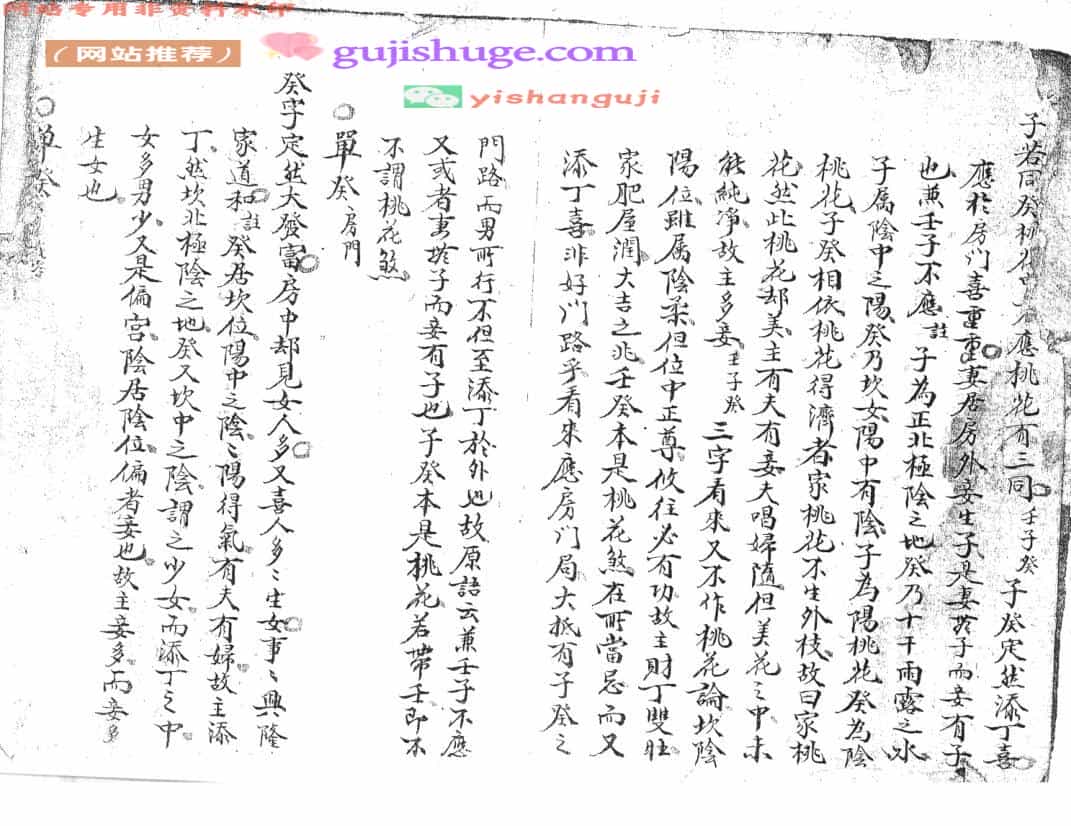 网站专用非资料水印
(网站推荐)
gujishuge.com
yishanguji
子若同癸桃花 應桃花有三同壬子癸 子癸定然添丁喜
應於房门喜重重妻居房外妾生子是妻無子而妾有子
也兼壬子不應註 子為正北極陰之地癸乃十干雨露之水
子属陰中之陽癸乃坎女陽中有陰子為陽桃花癸為陰
桃花子癸相依桃花得濟者家桃花不生外枝故曰家桃
花然此桃花却美主有夫有妾夫唱婦隨但美花之中未
能純净故主多妾壬子癸 三字看來又不作桃花論坎陰
陽位雖属陰柔但位中正尊攸往必有功故主財丁雙旺
家肥屋潤大吉之兆壬癸本是桃花煞在所當忌而又
添丁喜非好门路乎看來應房门局大抵有子癸之
門路而男所行不但至添丁於外也故原語云兼壬子不應
又或者妻無子而妾有子也子癸本是桃花若帶壬即不
不謂桃花煞
○單癸房門
癸字定然大發富房中却見女人多又喜人多〻生女事〻興隆
家道和註 癸居坎位陽中之陰〻陽得氣有夫有婦故主添
丁然坎北極陰之地癸又坎中之陰謂之少女而添丁之中
女多男少又是偏宮陰居陰位偏者妾也故主妾多而妾多
生女也
○單癸